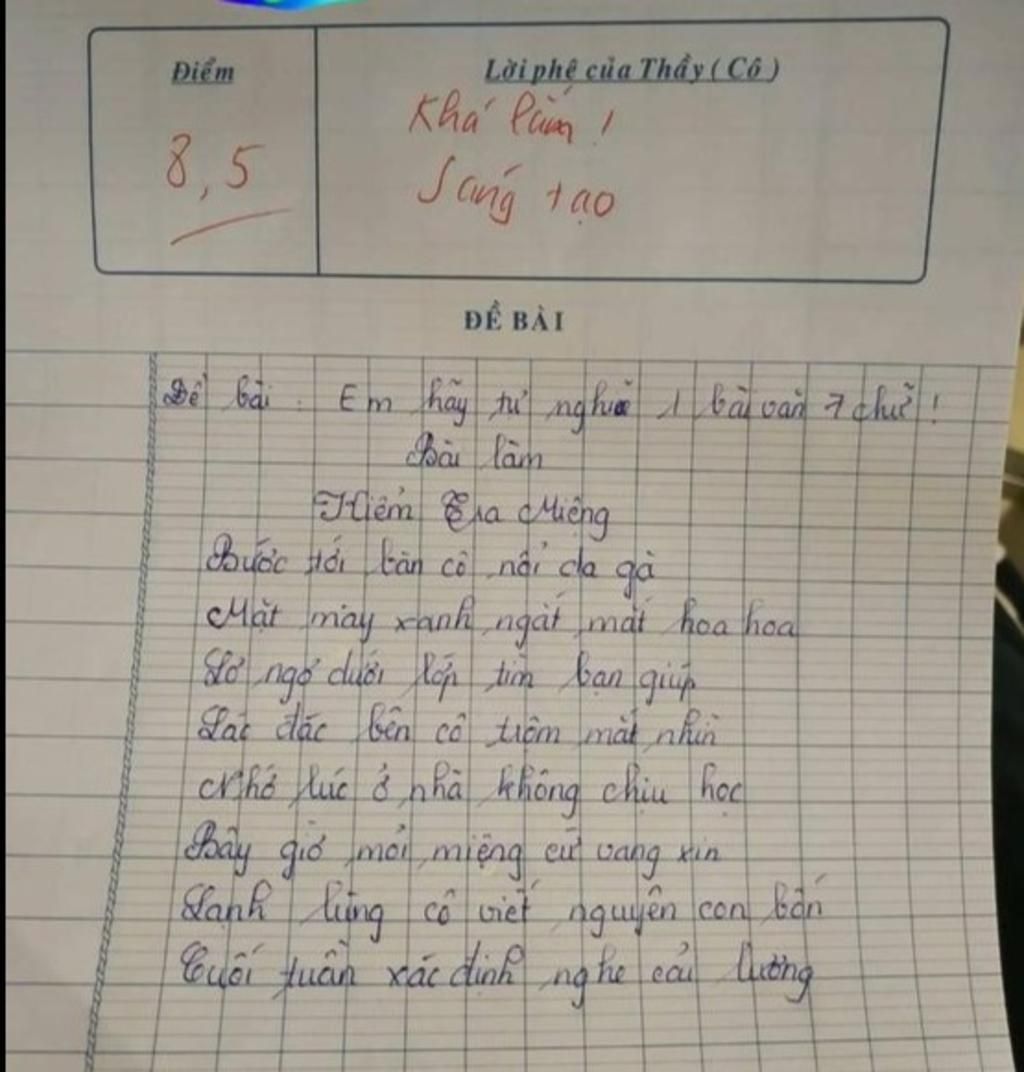 Điểm
Lời phê của Thầy ( Cô )
8,5
Khá lắm !
Sáng tạo
ĐỀ BÀI
Đề bài : Em hãy tự nghĩ 1 bài văn 7 chữ !
Bài làm
Kiểm Tra Miệng
Bước tới bàn cô nổi da gà
Mặt mày xanh ngắt mắt hoa hoa
Lơ ngơ dưới lớp tìm bạn giúp
Lác đác bên cô trộm mắt nhìn
Nhớ lúc ở nhà không chịu học
Bây giờ mỏi miệng cứ vang xin
Lạnh lùng cô viết nguyên con bốn
Cuối tuần xác định nghe cải lương